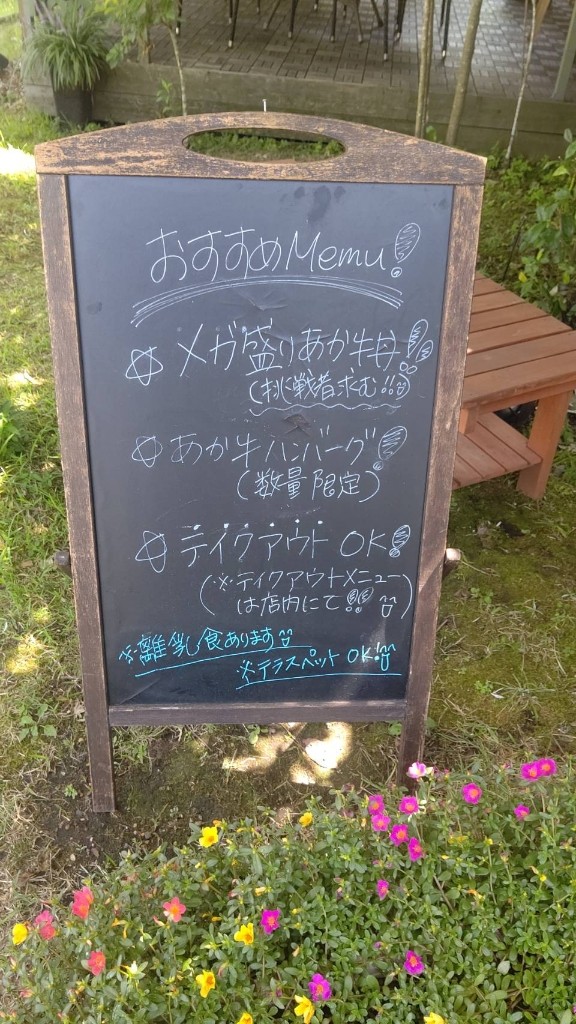 おすすめMemu!
☆メガ盛りあか牛丼!!
(挑戦者求む!!)
☆あか牛ハンバーグ!
(数量限定)
☆テイクアウトOK!
(※テイクアウトメニュー
は店内にて!!)
※離乳食あります
※テラスペットOK!